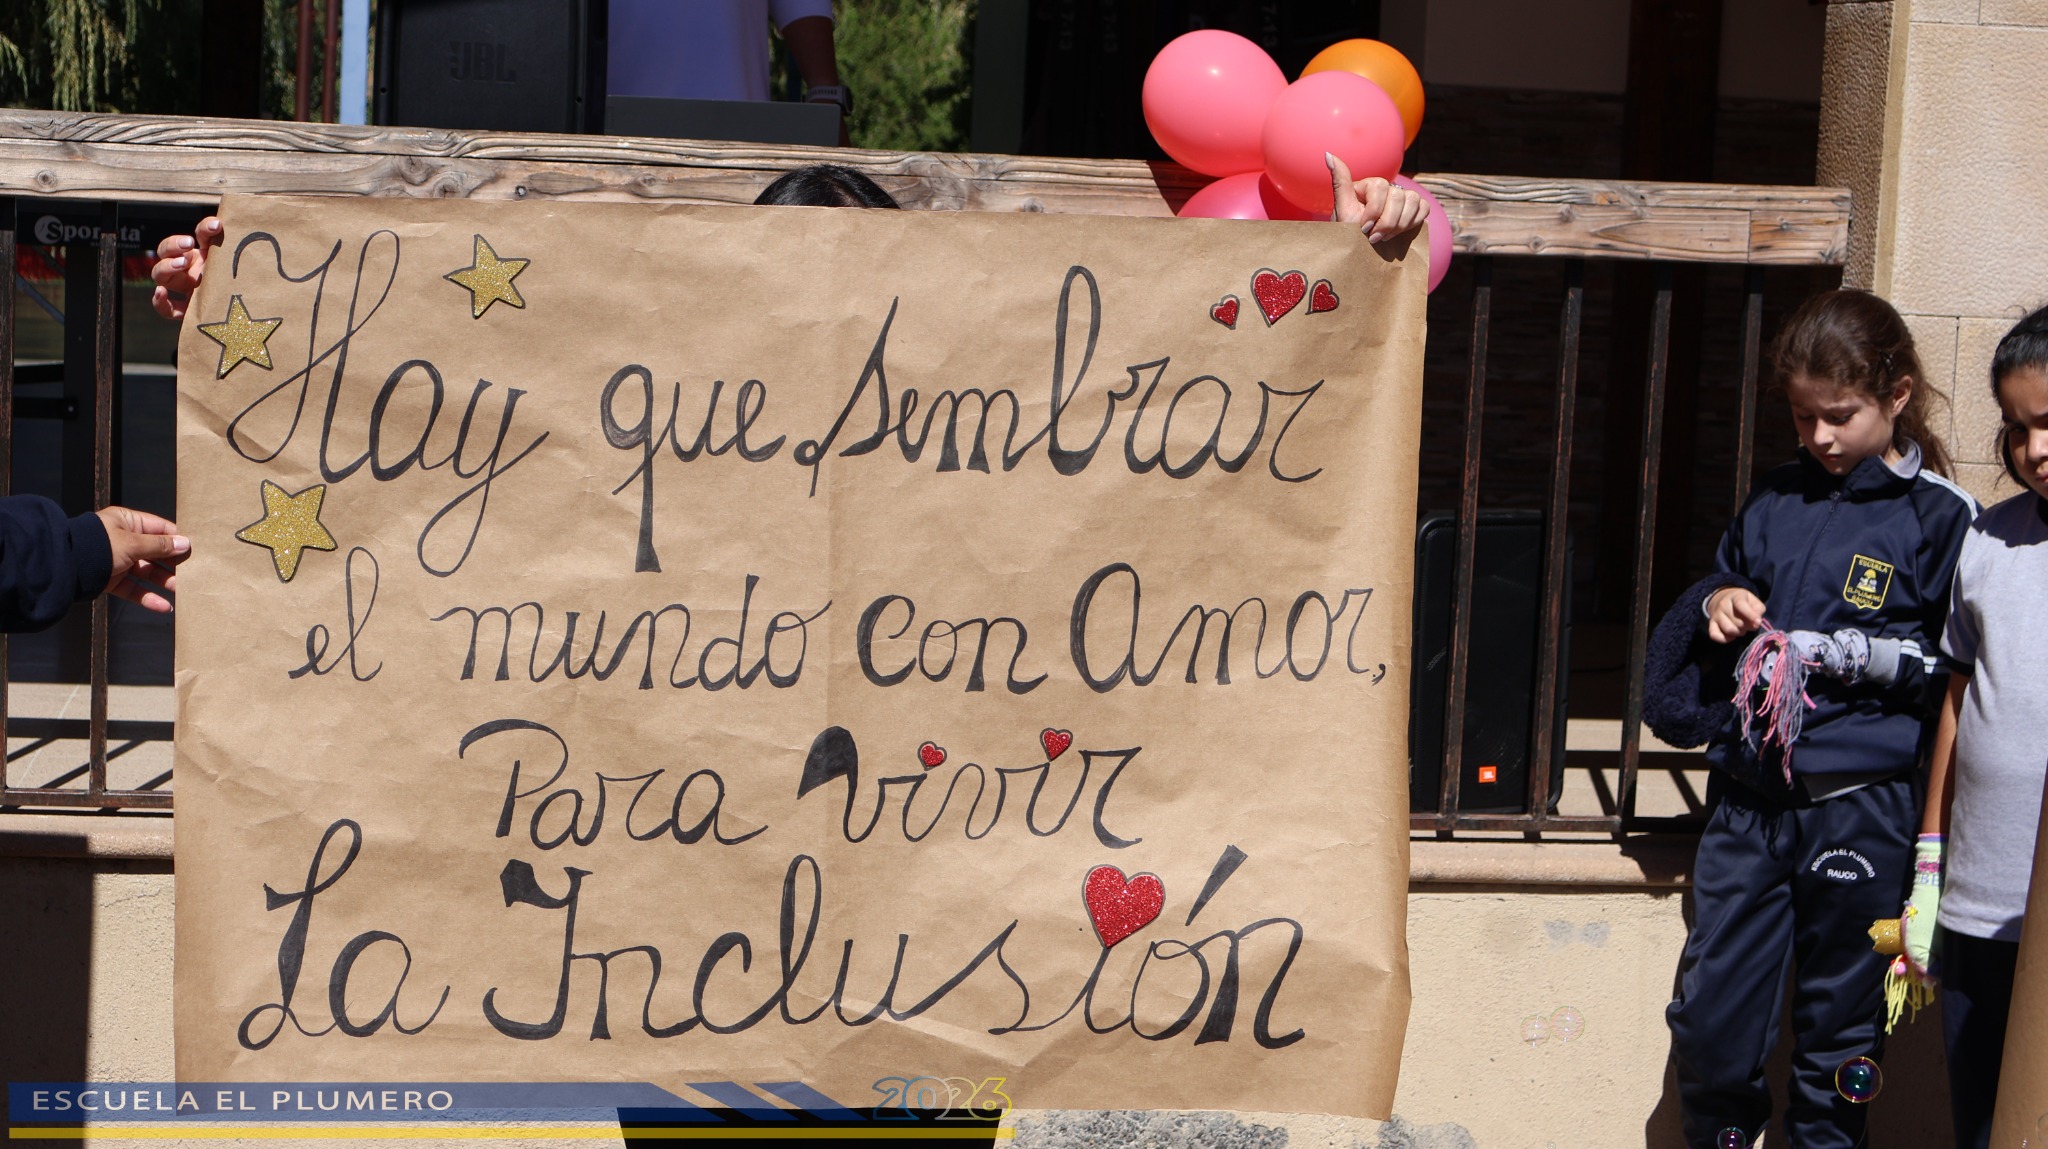 JBL
Sporata
Hay que sembrar
el mundo con Amor,
Para vivir
La Inclusión
ESCUELA
ESCUELA EL PLUMERO
RAUCO
JBL
ESCUELA EL PLUMERO
2026